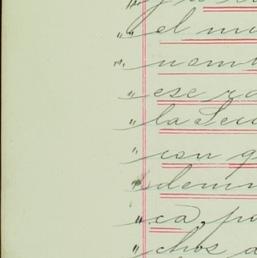 " el m
" nom
" ese r
" la Sec
" con g
" demn
" ca, po
" chos a